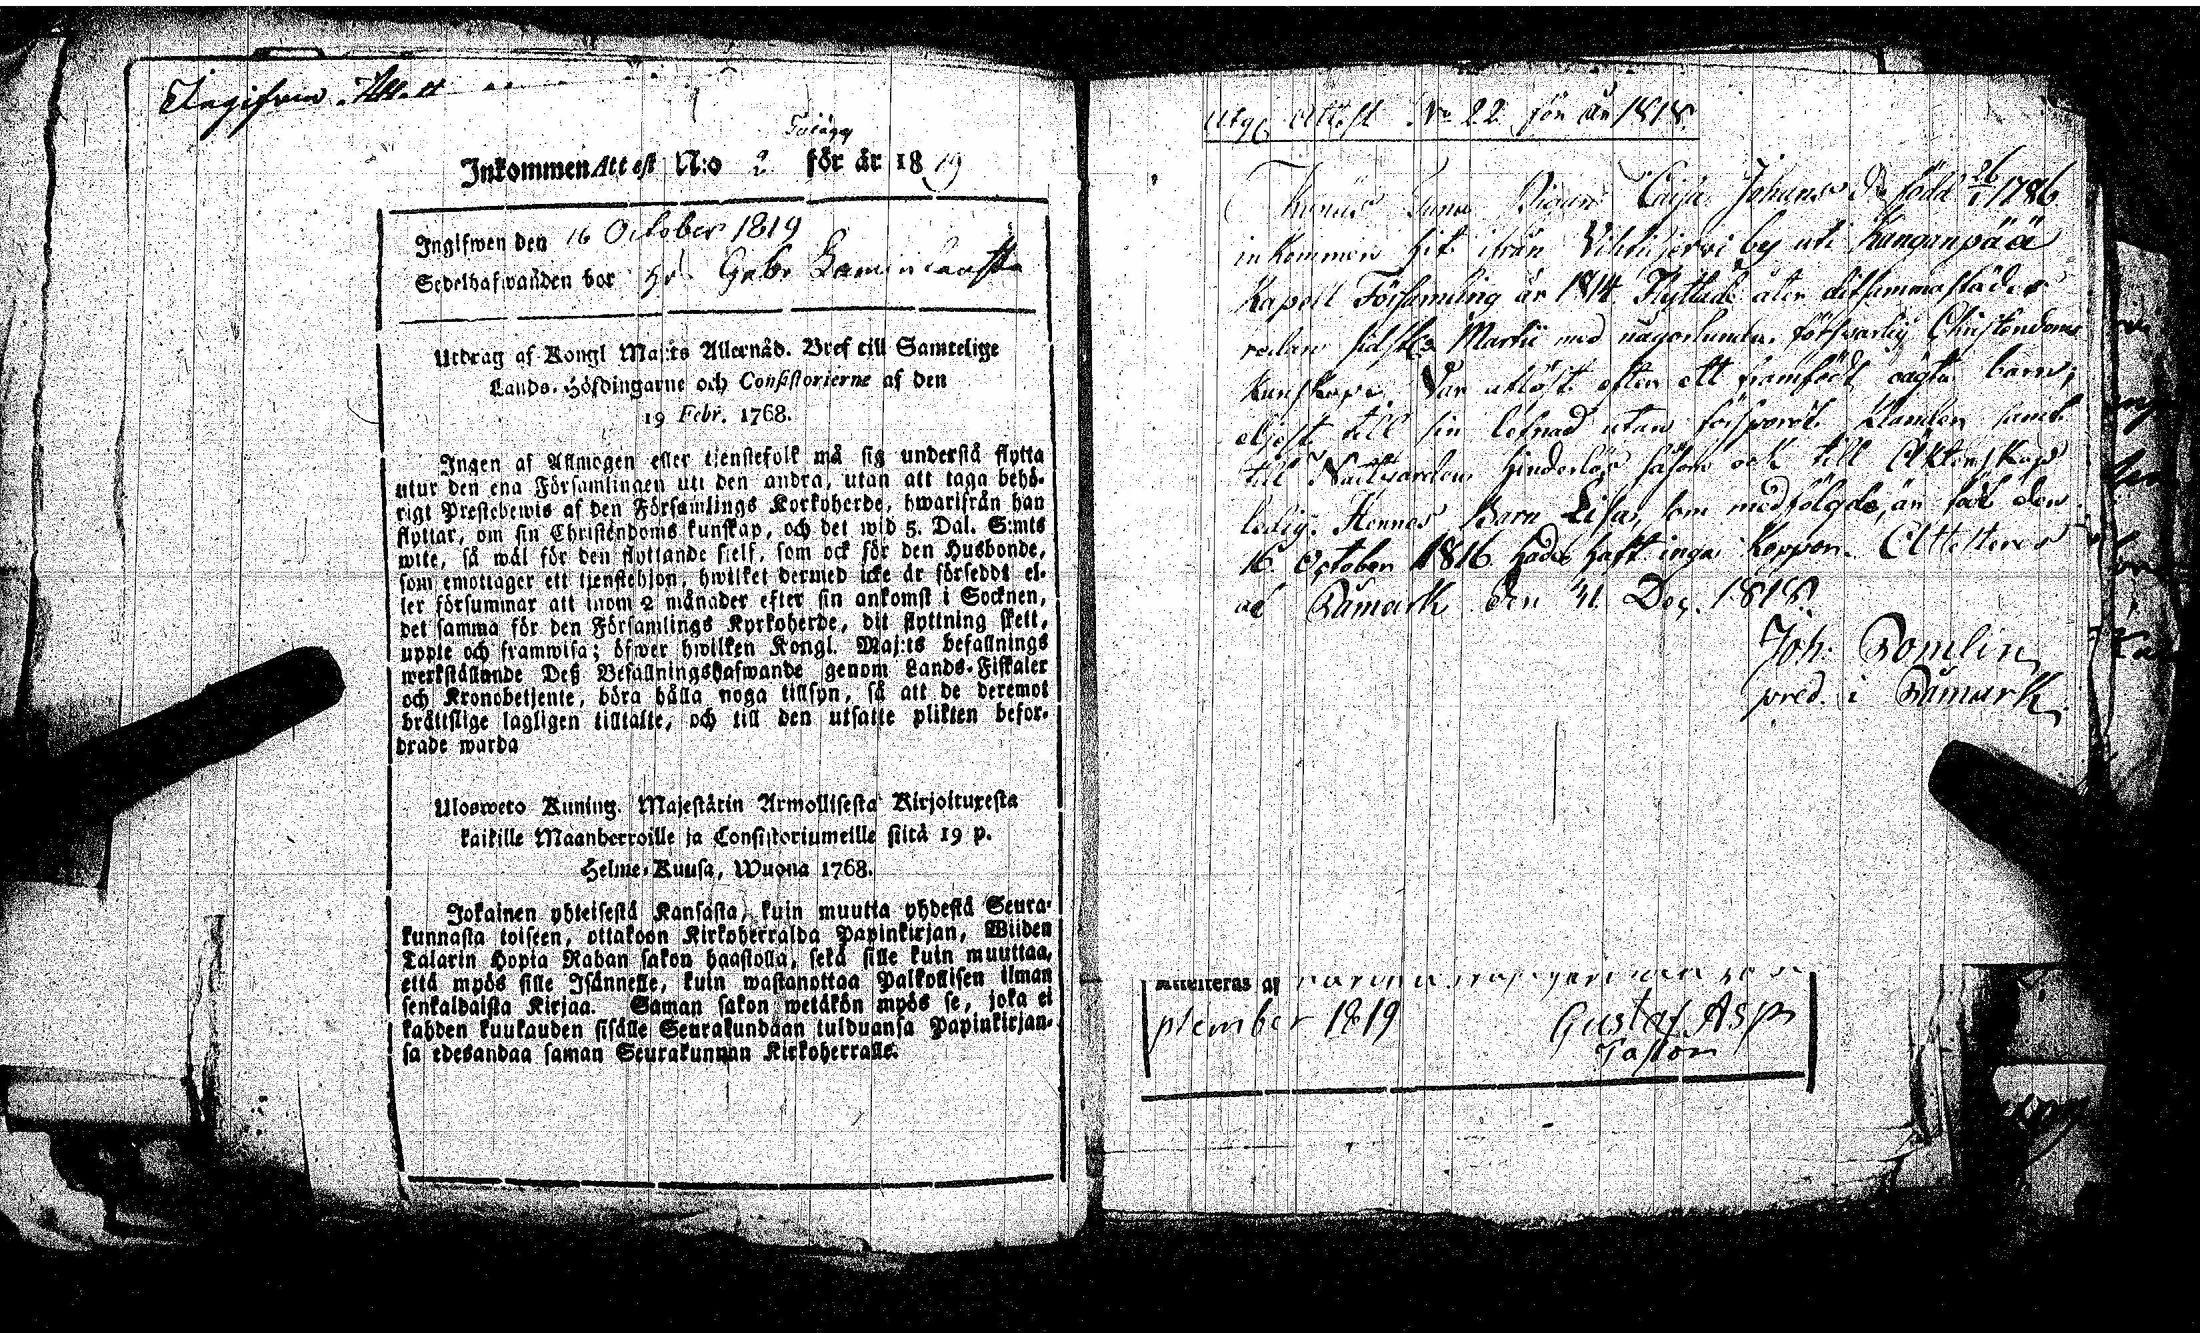 Inkommen Attest N:o 2 för år 1819
Ingifwen den 16 October 1819
Sedelhafwanden bor hr Gabr.
Utdrag af Kongl Maj:ts Allernåd. Bref till Samtelige
Lands-Höfdingarne och Consistorierne af den
19 Febr. 1768.
Ingen af Allmogen eller tjenstefolk må sig understå flytta
utur den ena Församlingen uti den andra, utan att taga behö-
rigt Prestebewis af den Församlings Kyrkoherde, hwarifrån han
flyttar, om sin Christendoms kunskap, och det wid 5. Dal. S:mts
wite, så wäl för den flyttande sielf, som ock för den Husbonde,
som emottager ett tjenstehjon, hwilket dermed icke är försedt el-
ler försummar att inom 2 månader efter sin ankomst i Socknen,
det samma för den Församlings Kyrkoherde, dit flyttning skett,
uppte och framwisa; öfwer hwilken Kongl. Maj:ts befallnings
werkställande Deß Befallningshafwande genom Lands-Fiskaler
och Kronobetjente, böra hålla noga tillsyn, så att de deremot
bråttslige lagligen tilltalte, och till den utsatte plikten befor-
drade warda
Ulosweto Kuning. Majestätin Armollisesta Kirjoituxesta
kaikille Maanherroille ja Consistoriumeille siitä 19 p.
Helme-Kuusa, Wuona 1768.
Jokainen yhteisestä Kansasta, kuin muutta yhdestä Seura-
kunnasta toiseen, ottakoon Kirkoherralda Papinkirjan, Wiiden
Talarin Hopia Rahan sakon haastolla, sekä sille kuin muuttaa,
että myös sille Isännelle, kuin wastanottaa Palkollisen ilman
senkaldaista Kirjaa. Saman sakon wetäkön myös se, joka ei
kahden kuukauden sisälle Seurakundaan tulduansa Papinkirjan-
sa edesandaa saman Seurakunnan Kirkoherralle.
Utg. Attest No 22 för år 1818.
Pigan Caisa Johans Dr född 26/1 1786
inkommen hit ifrån by uti Kanganpää
Kapell Församling år 1814 Flyttade åter ditsammastädes
redan sidstl. Martii med någorlunda försvarlig Christendoms
Kunskap. Var utlöst efter ett framfödt oägta barn;
eljest till sin lefnad utan försport klander samt
till Nattvarden hinderlös såsom ock till Äktenskap
ledig. Hennes Barn Lisa, som medfölgde, är född den
16 October 1816 hade haft inga koppor. Attesteras
af Påmark den 31 Dec. 1818.
Joh. Pomlin
pred. i Påmark.
Attesteras af
ptember 1819 Gustaf Asp
Pastor